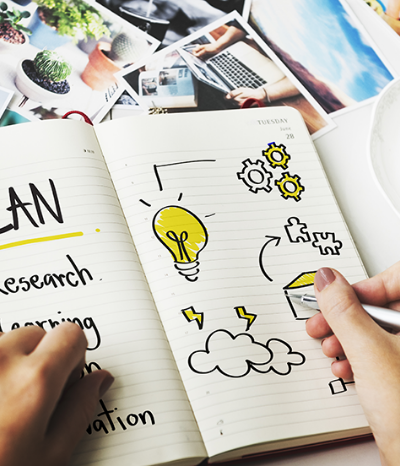 LAN
Research
Learning
vation
TUESDAY
28